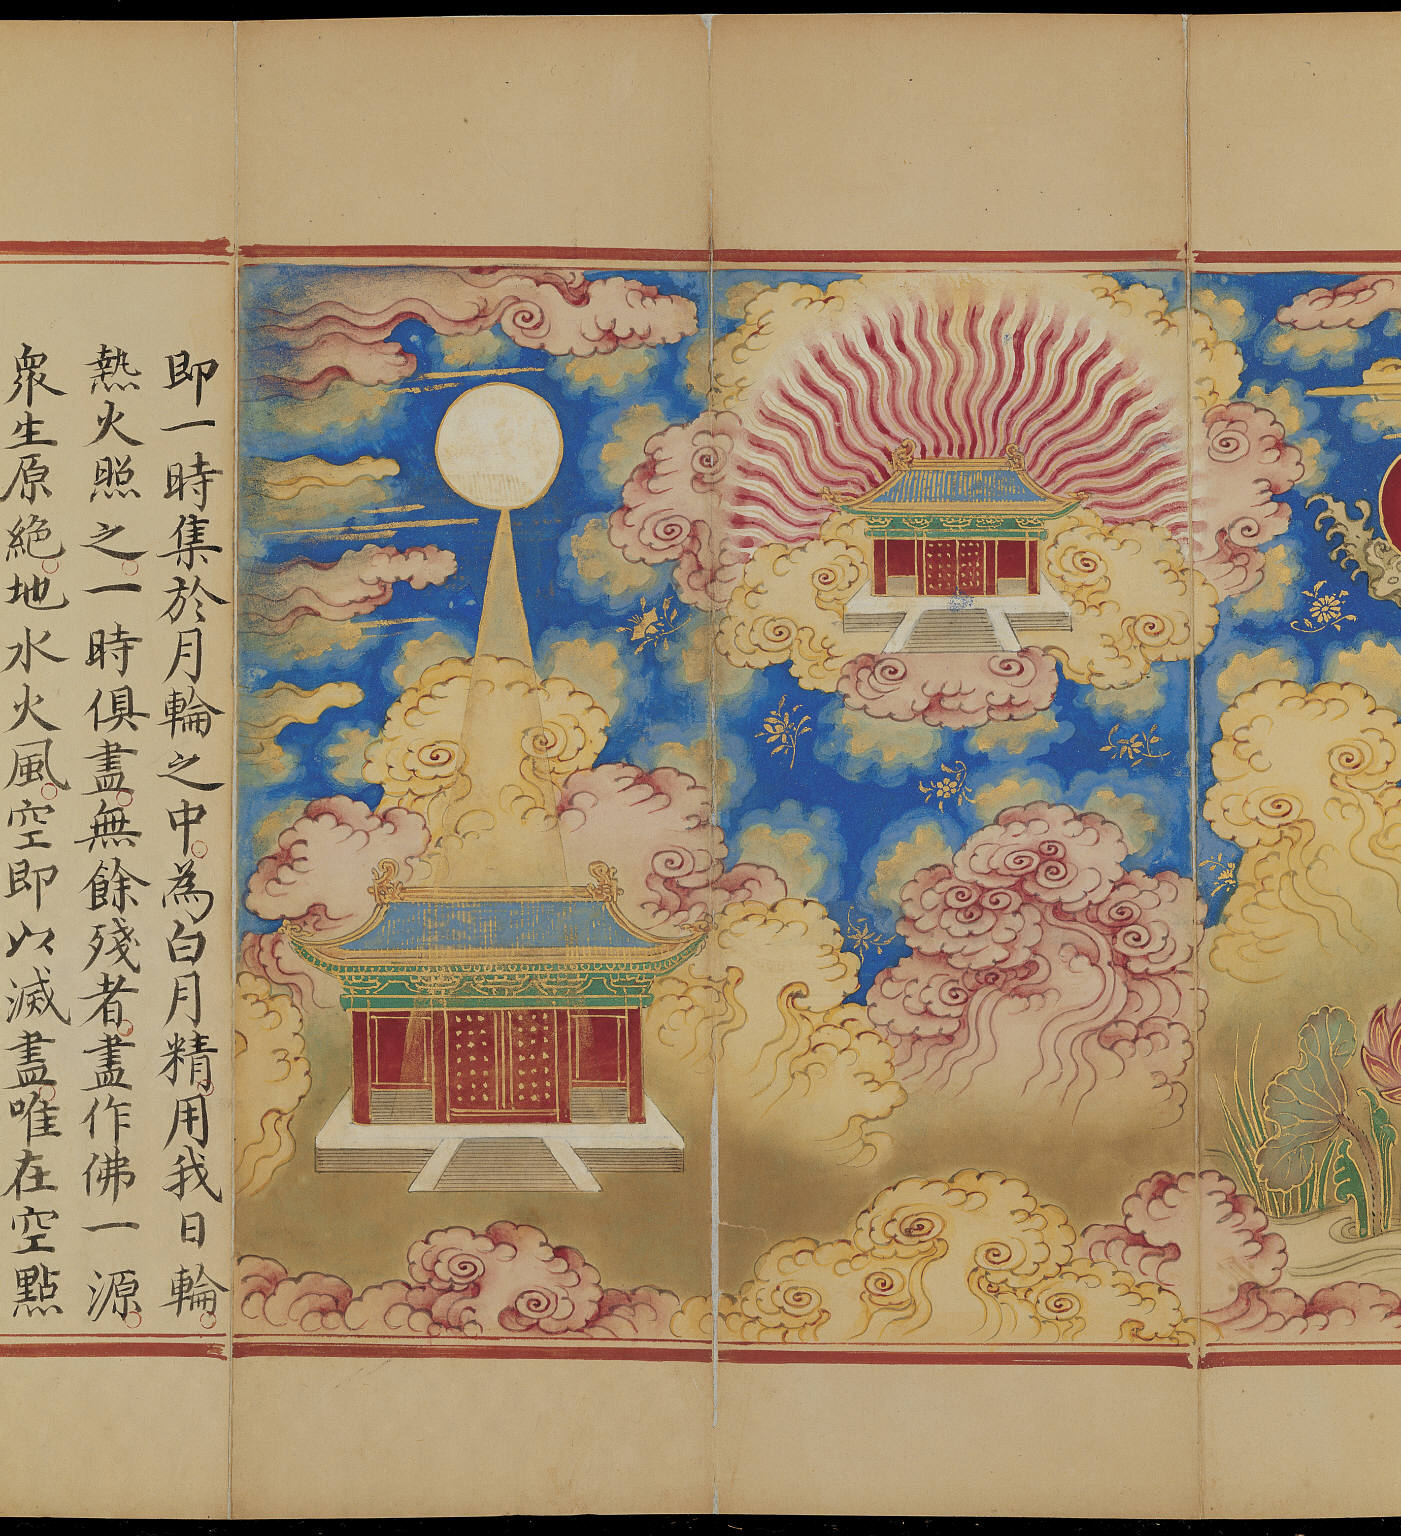 即一時集於月輪之中為白月精用我日輪
熱火照之一時俱盡無餘殘者盡作佛一源
衆生原絶地水火風空即以滅盡唯在空點